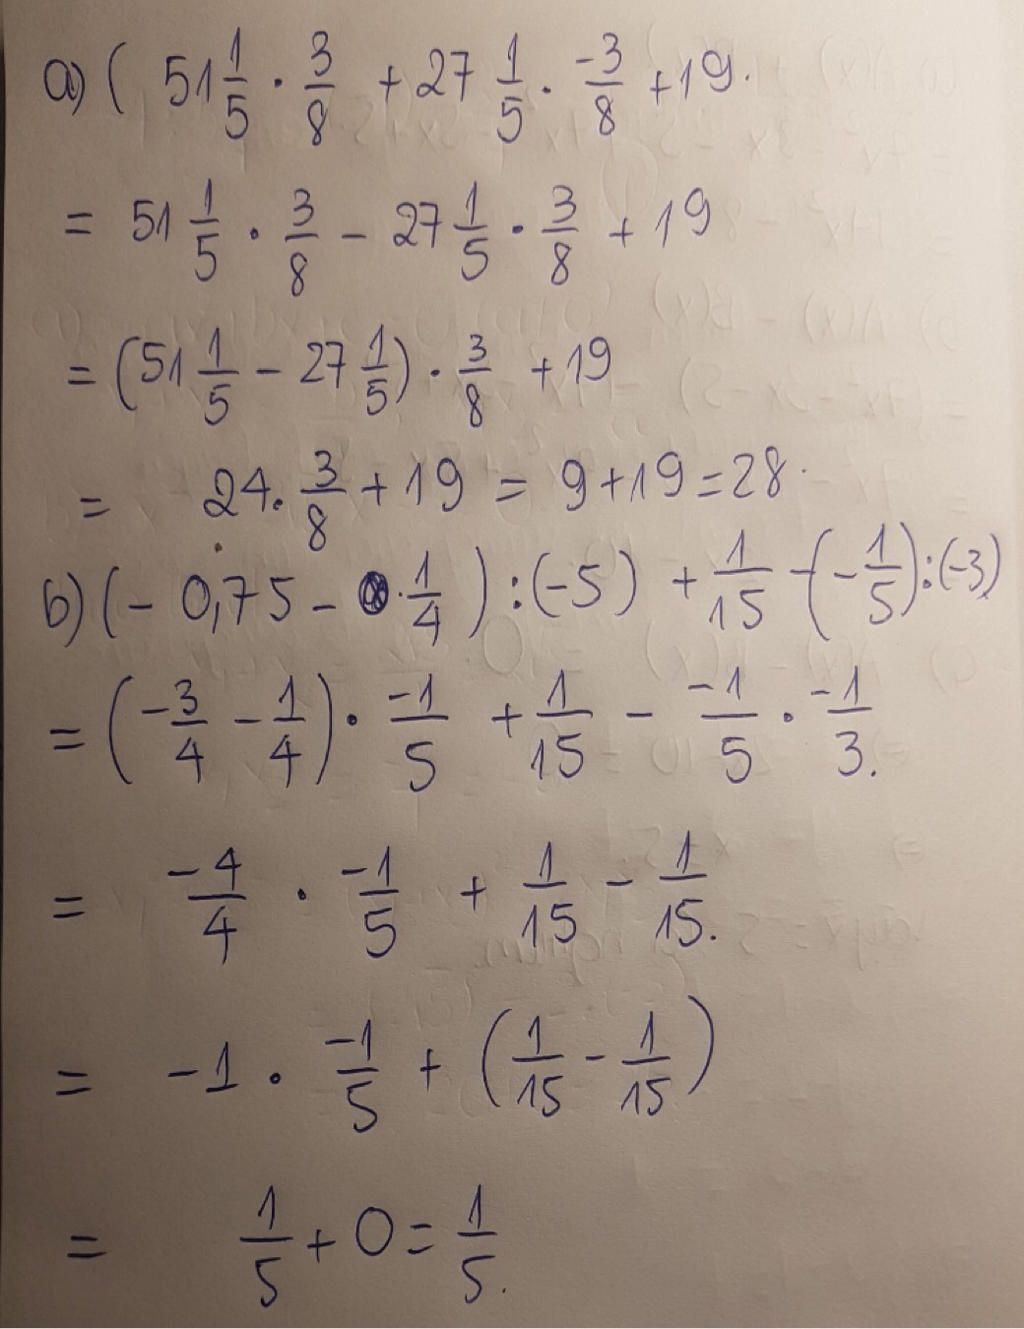 a) ( 51 1/5 · 3/8 + 27 1/5 · -3/8 + 19.
= 51 1/5 · 3/8 - 27 1/5 · 3/8 + 19
= (51 1/5 - 27 1/5) · 3/8 + 19
= 24. 3/8 + 19 = 9 + 19 = 28.
b) (- 0,75 - · 1/4) : (-5) + 1/15 - (- 1/5) : (-3)
= (-3/4 - 1/4) · -1/5 + 1/15 - -1/5 · -1/3.
= -4/4 · -1/5 + 1/15 - 1/15.
= -1 · -1/5 + (1/15 - 1/15)
= 1/5 + 0 = 1/5.